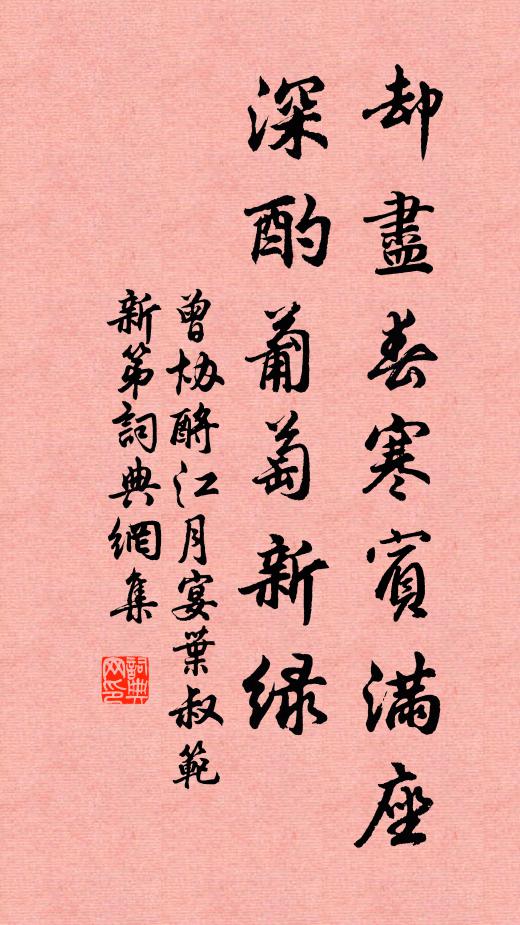 却盡春寒賓滿座
深酌葡萄新綠
曾协酹江月宴葉叔範
新第詞典網集
詞典网印